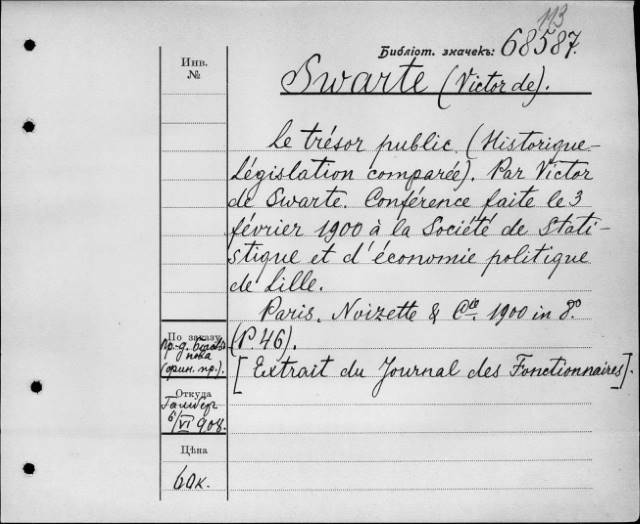 113
Библіот. значекъ: 68587.
Инв.
№
Swarte (Victor de).
Le trésor public (Historique-
Législation comparée). Par Victor
de Swarte. Conférence faite le 3
février 1900 à la Société de Stati-
stique et d'économie politique
de Lille.
Paris. Noizette & Cie. 1900 in 8o
(P. 46).
[Extrait du Journal des Fonctionnaires].
По заказу
(юрин. пр.).
Откуда
6/VI 908.
Цѣна
60к.